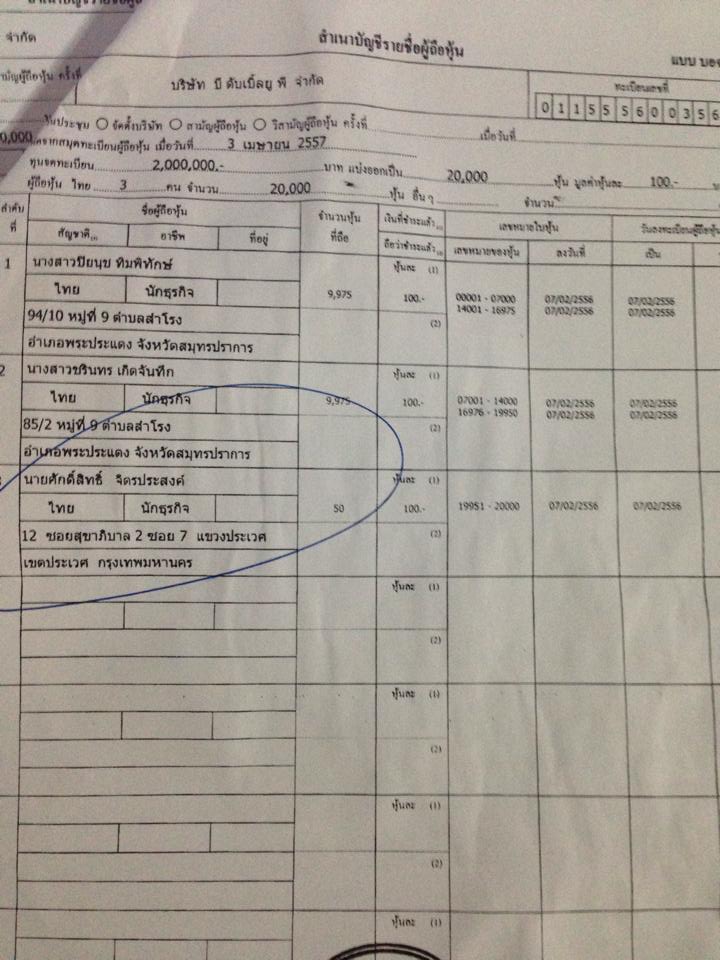 จำกัด
สำเนาบัญชีรายชื่อผู้ถือหุ้น
แบบ บอจ
ผู้ถือหุ้น ครั้งที่
บริษัท บี ดับเบิ้ลยู พี จำกัด
ทะเบียนเลขที่
0 1 1 5 5 5 6 0 0 3 5 6
ประชุม จัดตั้งบริษัท สามัญผู้ถือหุ้น วิสามัญผู้ถือหุ้น ครั้งที่ เมื่อวันที่
คัดจากสมุดทะเบียนผู้ถือหุ้น เมื่อวันที่ 3 เมษายน 2557
ทุนจดทะเบียน 2,000,000.- บาท แบ่งออกเป็น 20,000 หุ้น มูลค่าหุ้นละ 100.-
ผู้ถือหุ้น ไทย 3 คน จำนวน 20,000 หุ้น อื่น ๆ จำนวน
ลำดับที่ ชื่อผู้ถือหุ้น จำนวนหุ้นที่ถือ เงินที่ชำระแล้ว เลขหมายใบหุ้น วันลงทะเบียนผู้ถือหุ้น
สัญชาติ อาชีพ ที่อยู่ ถือว่าชำระแล้ว เลขหมายของหุ้น ลงวันที่ เป็น
1 นางสาวปิยนุช ทิมพิทักษ์ หุ้นละ (1)
ไทย นักธุรกิจ 9,975 100.- 00001 - 07000 07/02/2556 07/02/2556
14001 - 16975 07/02/2556 07/02/2556
94/10 หมู่ที่ 9 ตำบลสำโรง (2)
อำเภอพระประแดง จังหวัดสมุทรปราการ
2 นางสาวชรินทร เกิดจันทึก หุ้นละ (1)
ไทย นักธุรกิจ 9,975 100.- 07001 - 14000 07/02/2556 07/02/2556
16976 - 19950 07/02/2556 07/02/2556
85/2 หมู่ที่ 9 ตำบลสำโรง (2)
อำเภอพระประแดง จังหวัดสมุทรปราการ
นายศักดิ์สิทธิ์ จิตรประสงค์ หุ้นละ (1)
ไทย นักธุรกิจ 50 100.- 19951 - 20000 07/02/2556 07/02/2556
12 ซอยสุขาภิบาล 2 ซอย 7 แขวงประเวศ (2)
เขตประเวศ กรุงเทพมหานคร
หุ้นละ (1)
(2)
หุ้นละ (1)
(2)
หุ้นละ (1)
(2)
หุ้นละ (1)